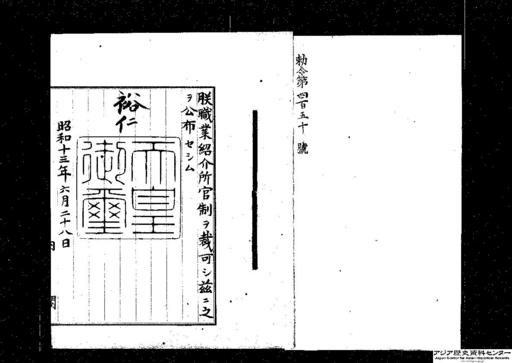 勅令第四百五十號
朕職業紹介所官制ヲ裁可シ茲ニ之
ヲ公布セシム
裕仁
天皇
御璽
昭和十三年六月二十八日
内閣
アジア歴史資料センター
Japan Center for Asian Historical Records